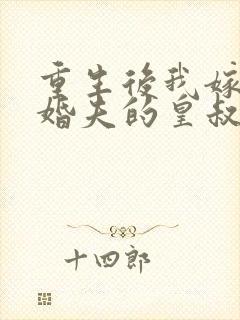 重生後我嫁
婚夫的皇叔
十四郎